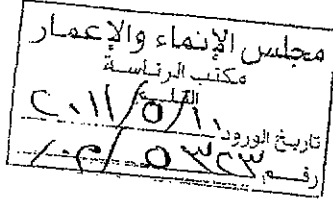 مجلس الإنماء والإعمار
مكتب الرئاسة
تاريخ الورود ٢٠١١/٥/١٠
رقم